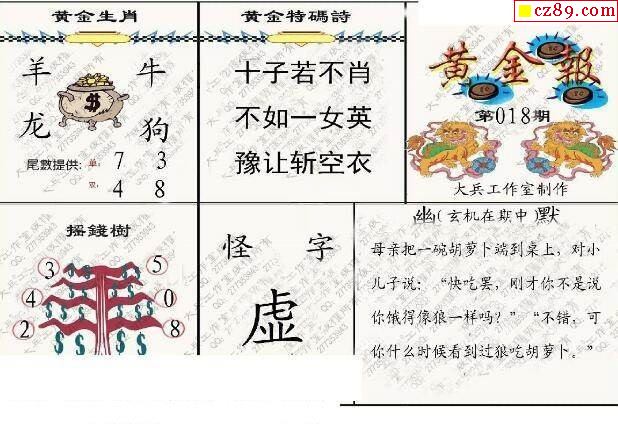 cz89.com
黄金生肖
羊 牛
龙 狗
尾數提供: 单: 7 3
双: 4 8
黄金特碼詩
十子若不肖
不如一女英
豫让斩空衣
黄金報
第018期
大兵工作室制作
摇錢樹
3 5
4 0
2 8
怪 字
虚
幽(玄机在期中)默
母亲把一碗胡萝卜端到桌上，对小
儿子说：“快吃罢，刚才你不是说
你饿得像狼一样吗？”“不错，可
你什么时候看到过狼吃胡萝卜。”